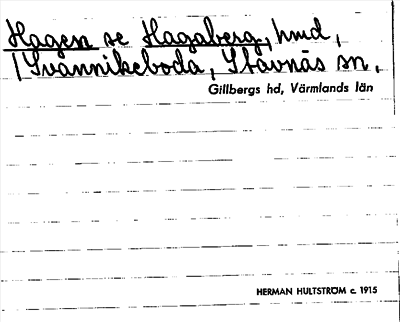 Hagen se Hagaberg, hmd,
/ Svännikeboda, Stavnäs sn,
Gillbergs hd, Värmlands län
HERMAN HULTSTRÖM c. 1915